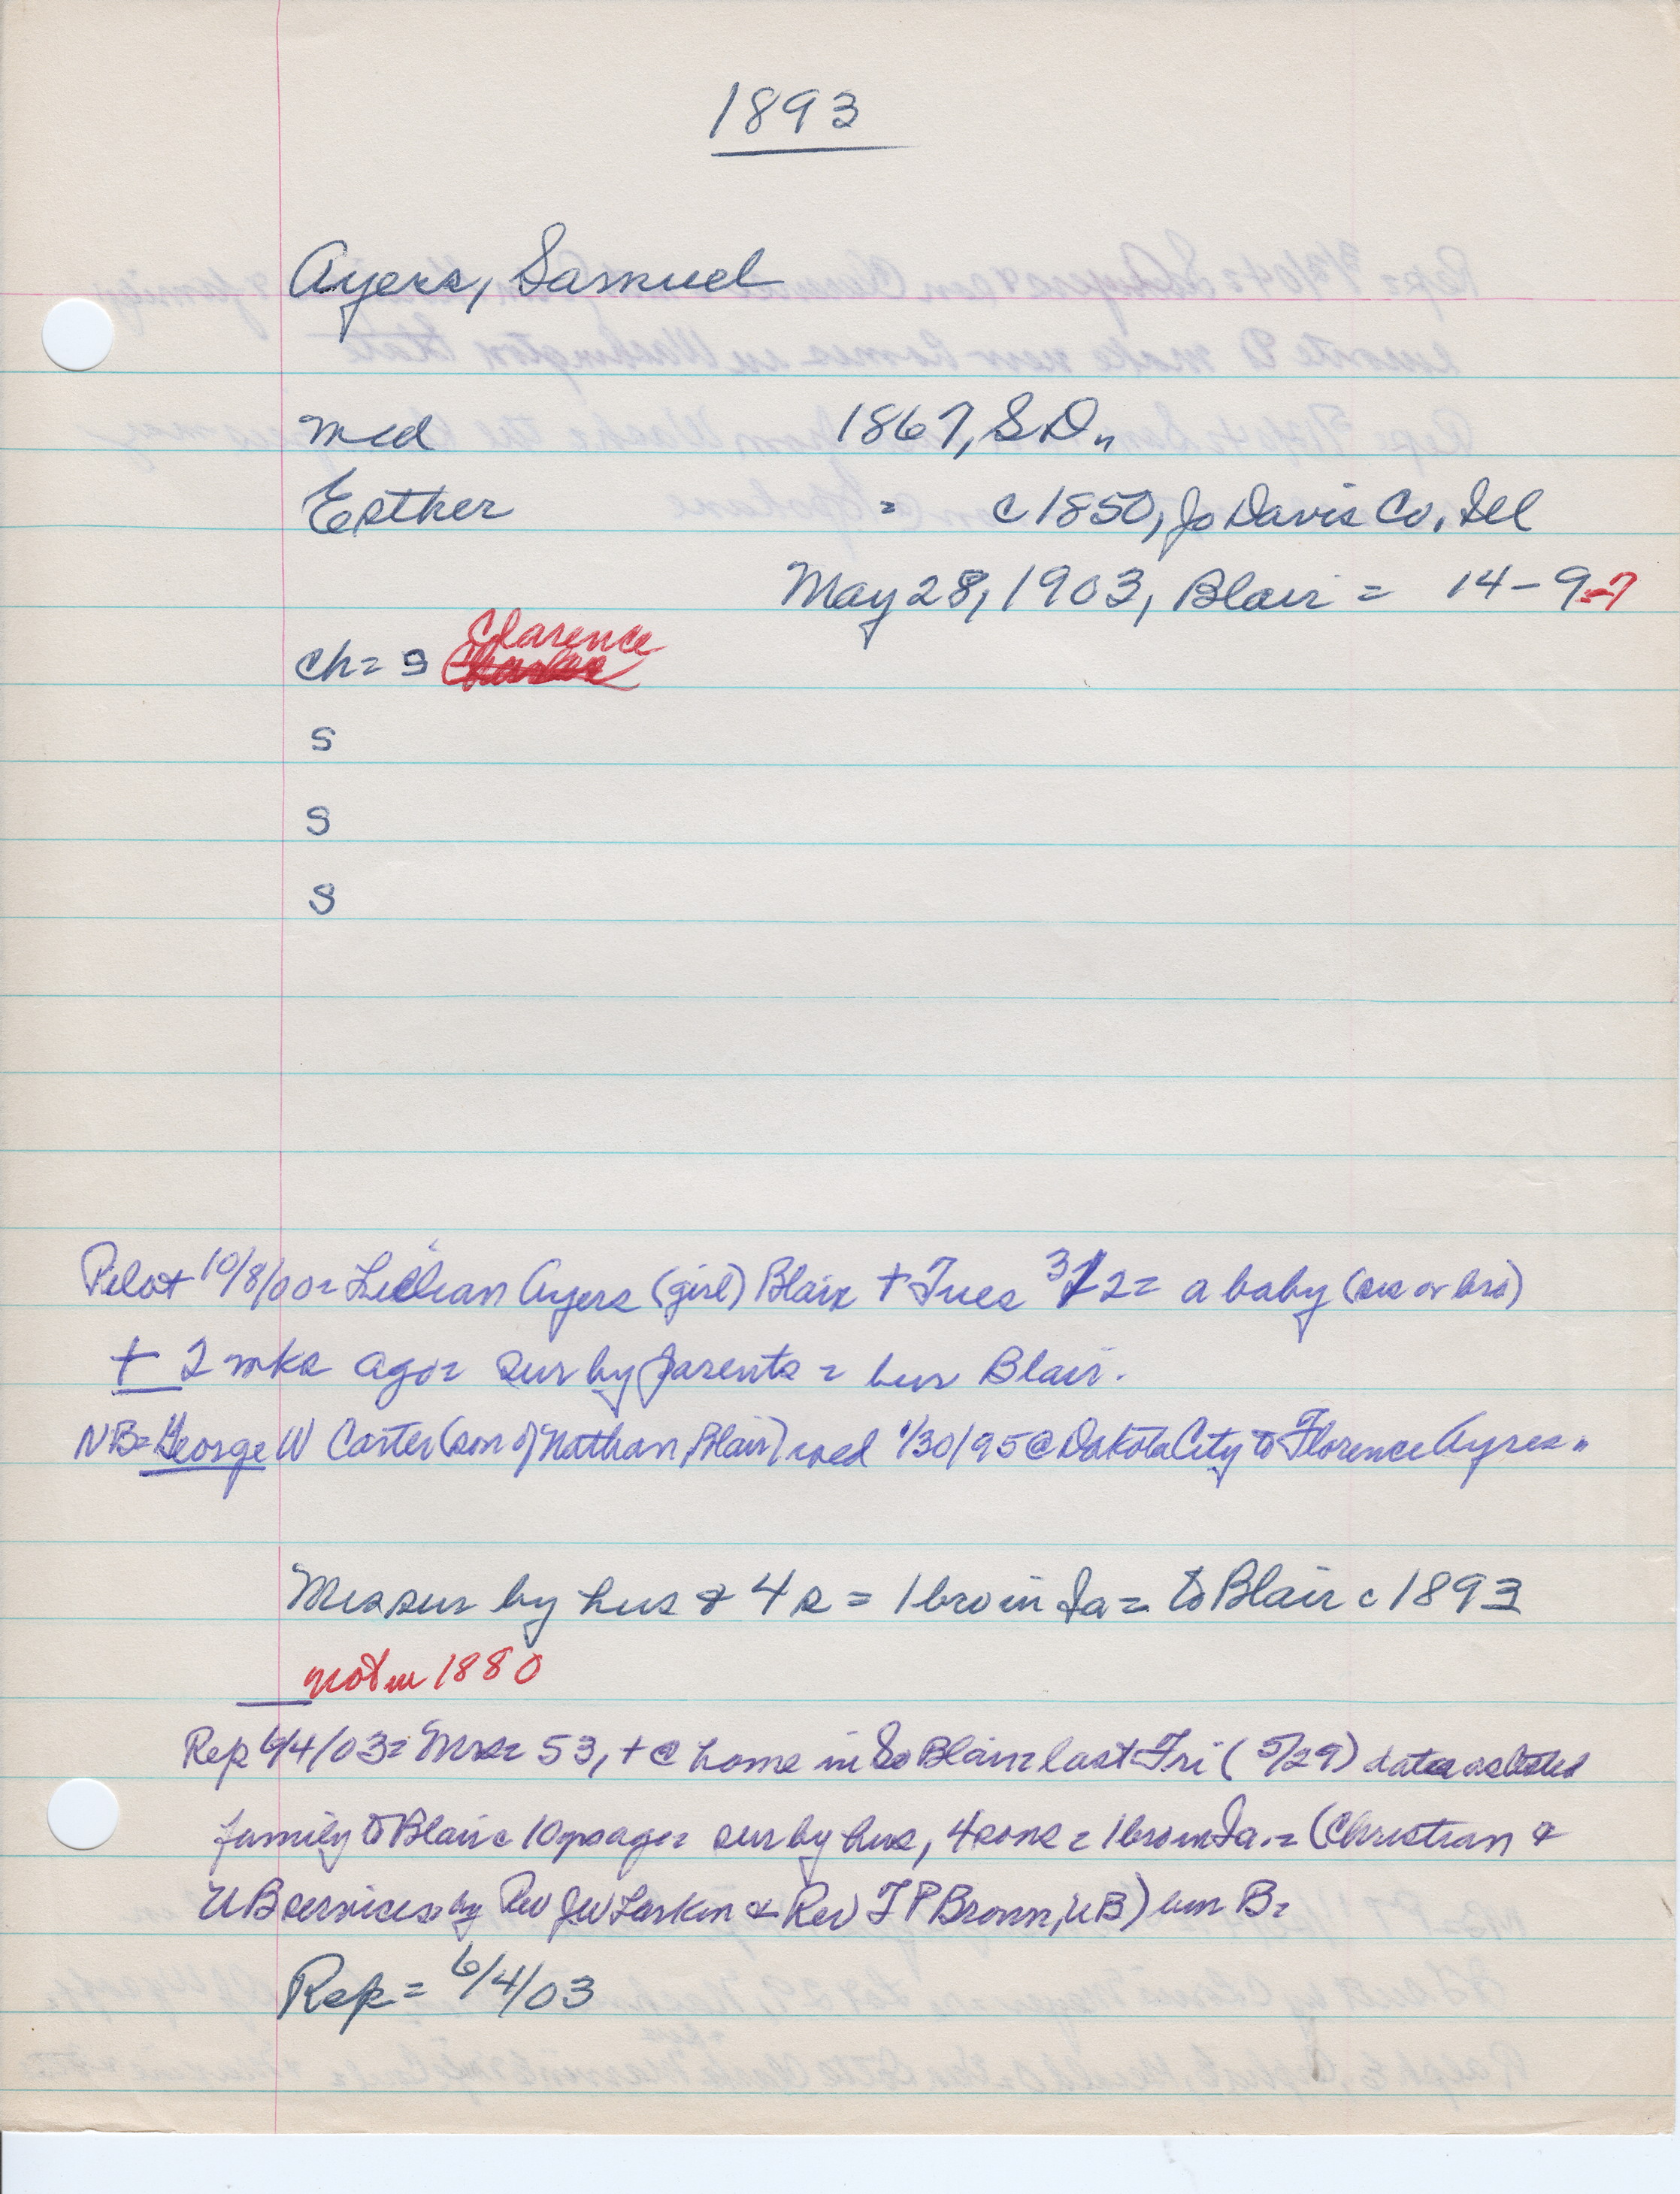 1893
Ayers, Samuel
med 1867, S.D.,
Esther = c1850, Jo Davis Co, Ill
May 28, 1903, Blair = 14-9-7
Clarence
ch= s
s
s
s
Pilot 10/8/00= Lillian Ayers (girl) Blair + Tues = a baby (sis or bro)
+ 2 wks ago= sur by parents = bur Blair.
NB= George W Carter (son of Nathan, Blair) wed 1/30/95 @ Dakota City to Florence Ayres
Mrs sur by hus & 4 s = 1 bro in Ia = to Blair c1893
not in 1880
Rep 6/4/03= Mrs= 53, + @ home in So Blair= last Fri (5/29) dates as listed
family to Blair c 10 yrs ago= sur by hus, 4 sons = 1 bro in Ia. = (Christian &
UB services by Rev JW Larkin & Rev F P Brown, UB) bur B=
Rep= 6/4/03